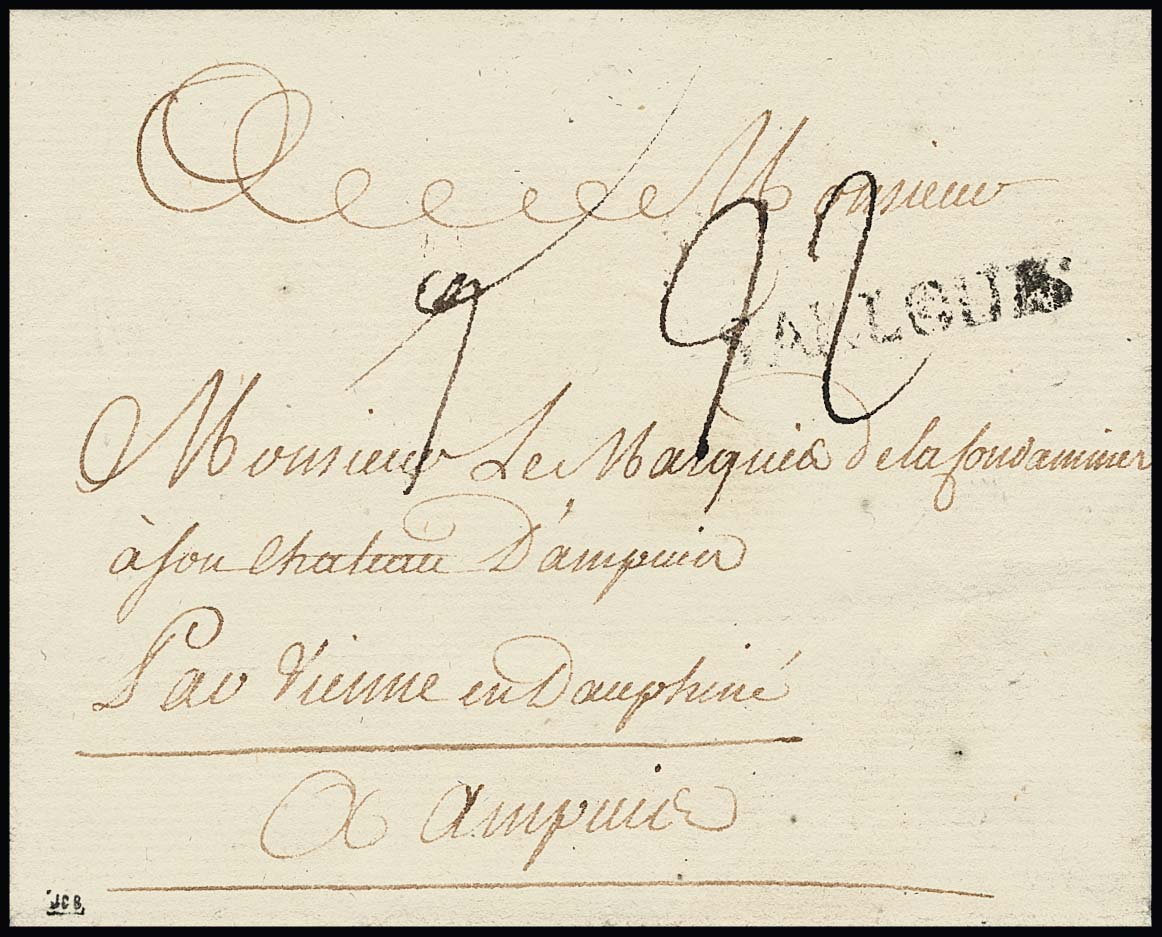 A Monsieur
92
Monsieur Le Marquis de la Condaminer
à son Chateau D'ampuis
Par Vienne en Dauphiné
A Ampuis
JCB